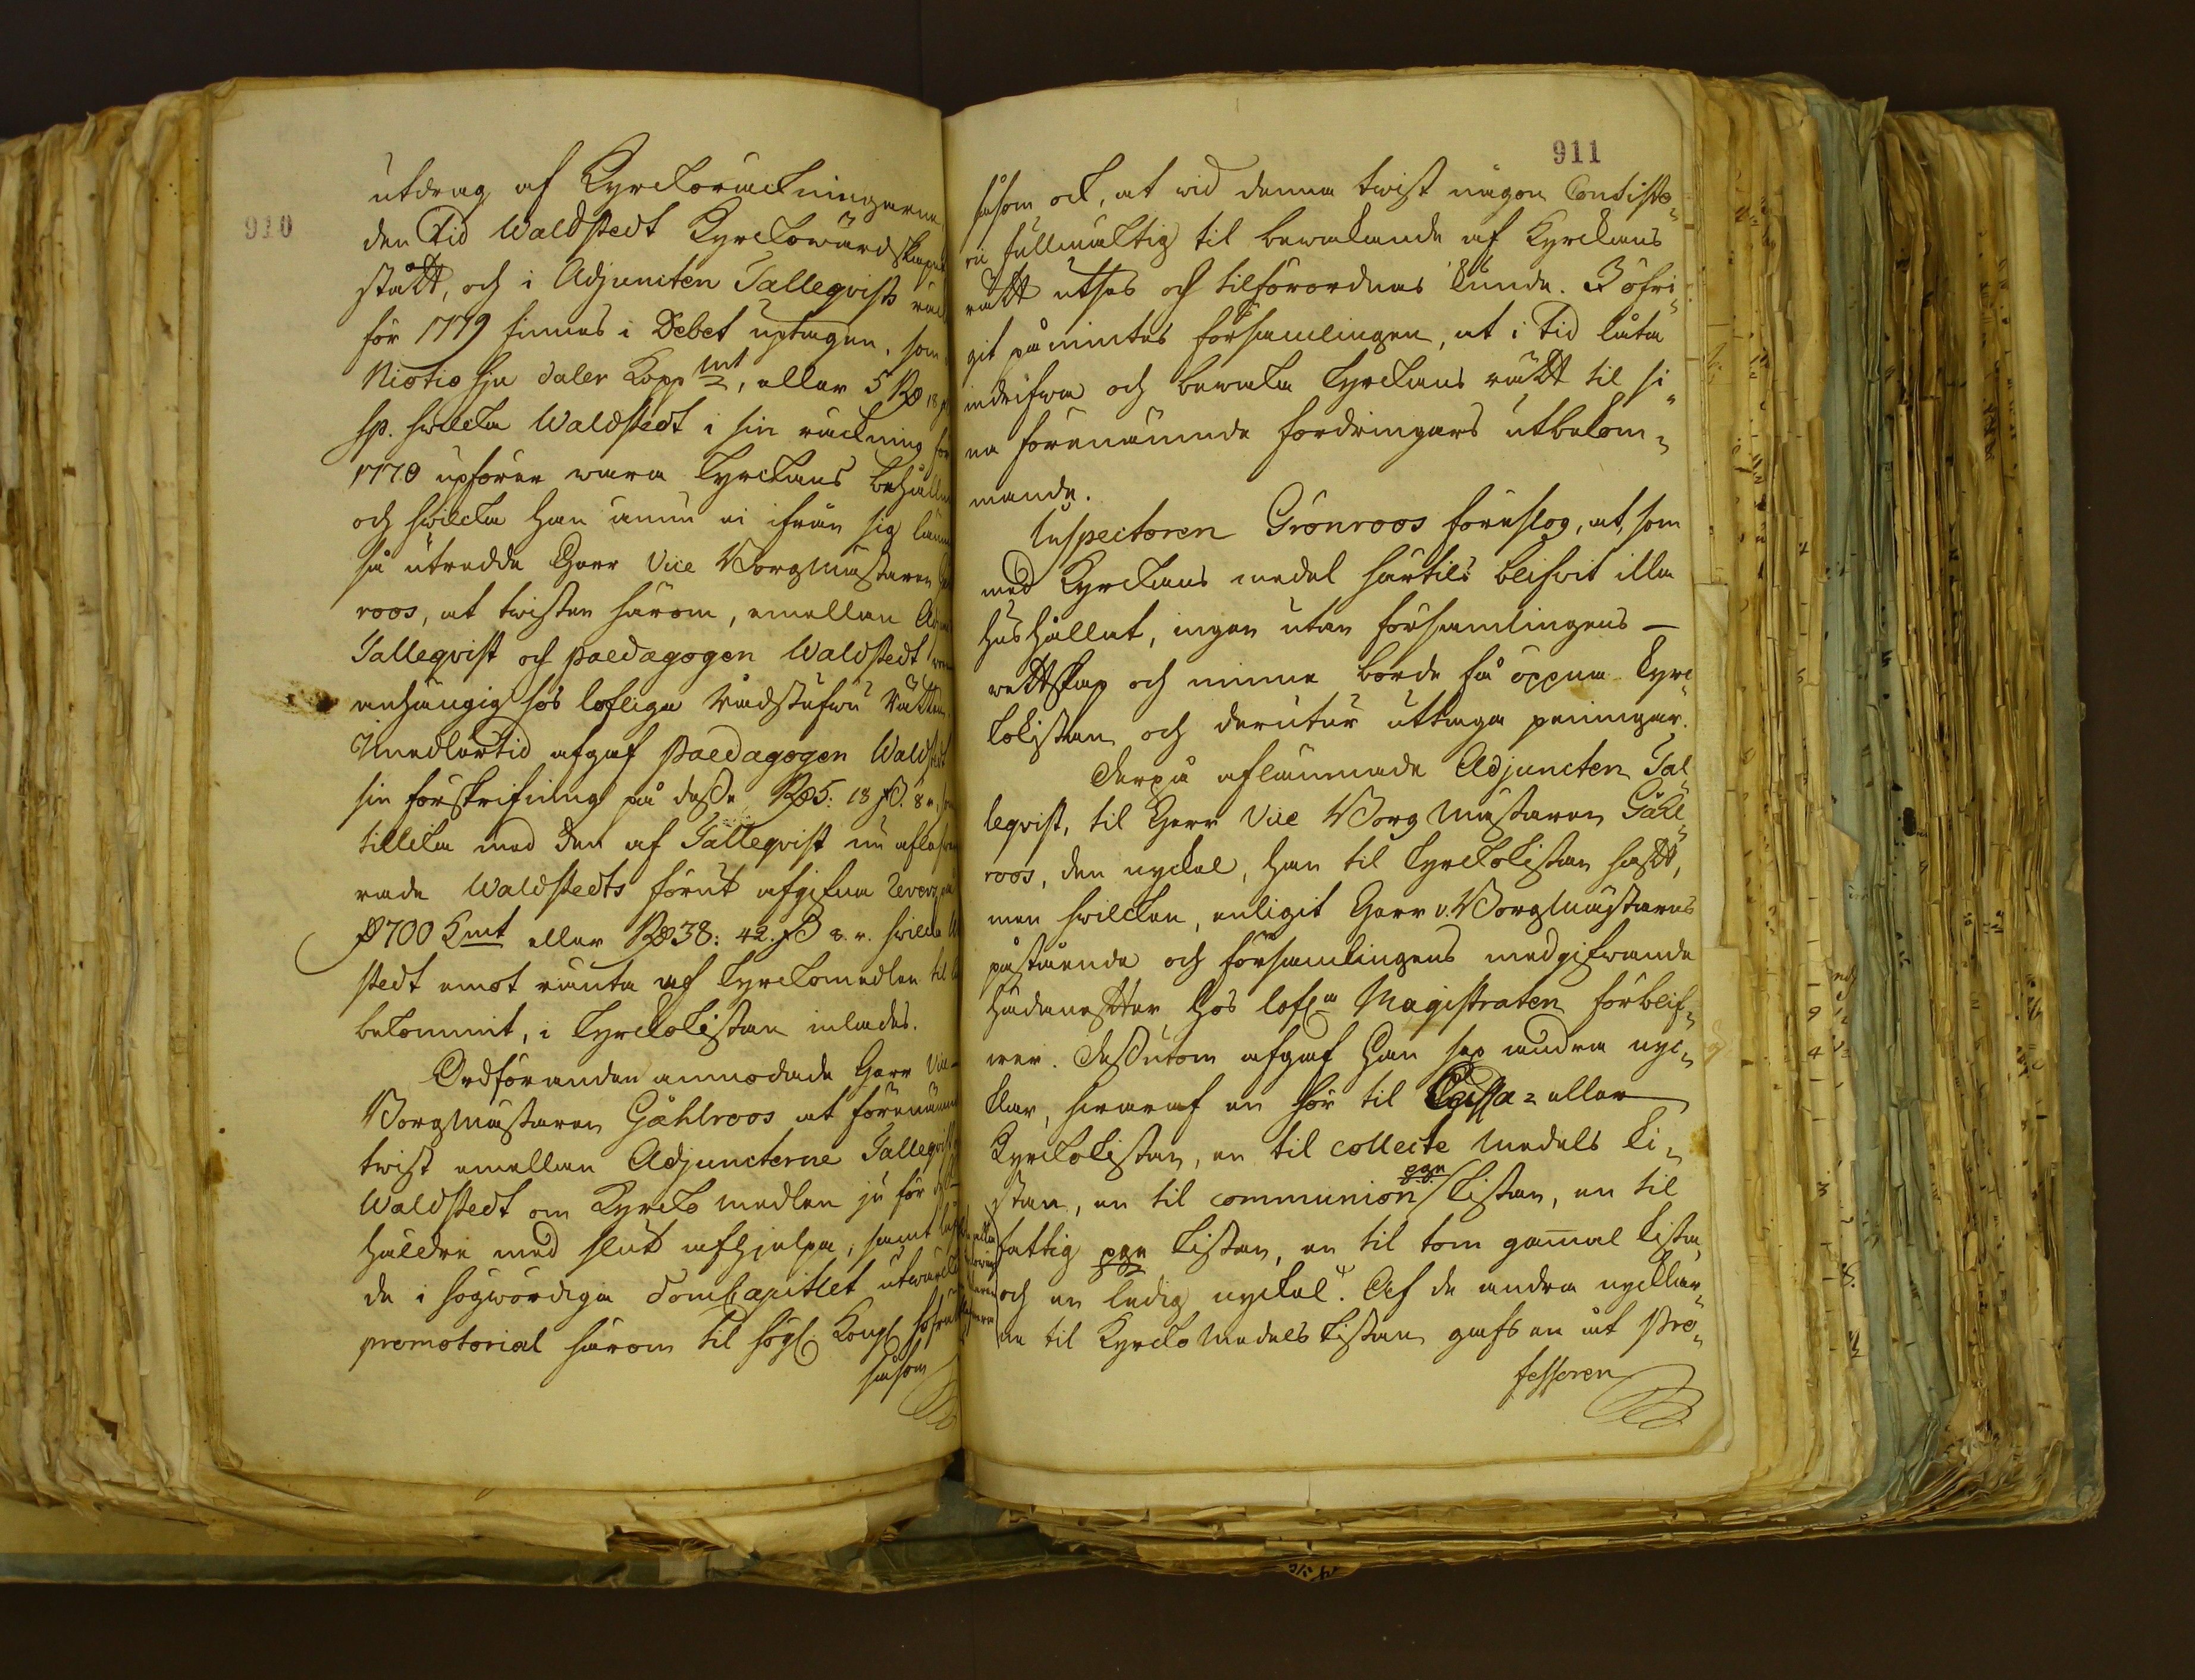 910
utdrag af Kyrckoräckningarne
den Tid Waldstedt Kyrckowärdskapet
stådt, och i Adjuncten Tallegvists
för 1779 finnes i Debet uptagen, som
Niotio sju daler Kopp mt, eller 5 Rd 18
sp. hwilcka Waldstedt i sin räckning för
1770 upförer wara Kyrckans behålln
och hwilcka han ännu ei ifrån sig
så utredde Herr Vice Borgmästaren
roos, at twisten härom, emellan
Tallegvist och paedagogen Waldstedt
anhängig hos lofliga Rådstufwu Rätten.
Imedlertid afgaf Paedagogen Waldstedt
sin förskrifning på desse Rd 5: 18 ß. 8 r.
tillika med den af Tallegvist nu aflefwe
rade Waldstedts förut afgifna Revers
700 Kmt eller Rd 38: 42. ß 8. r. hwilcka
stedt emot ränta af Kyrckomedlen til
bekommit, i Kyrckokistan inlades.
Ordföranden anmodade Herr Vice
Borgmästaren Gåhlroos at förenämnde
twist emellan Adjuncterne Tallegvist
Waldstedt om Kyrcko medlen ju för
häldre med slut afhjelpa, samt
de i högwördiga DomCapitlet utwärcka
promotorial härom til högl. Kongl. Hofrätten
såsom
911
såsom ock, at wid denna twist någon Consisto„
rii fullmäktig til bewakande af Kyrckans
rätt utses och tilförordnas kunde. I öfri„
git påmintes församlingen, at i Tid låta
indrifwa och bewaka Kyrckans rätt til si„
na förenämnde fordringars utbekom„
mande.
Inspectoren Grönroos föreslog, at, som
med Kyrckans medel härtils blifvit illa
hushållat, ingen utan församlingens
wettskap och minne borde få öppna Kyrc„
kokistan och derutur uttaga peningar.
Derpå aflämnade Adjuncten Tal„
legvist, til Herr Vice Borgmästaren Gåhl„
roos, den nyckel, han til Kyrckokistan hadt,
men hwilcken, enligit Herr v. Borgmästarens
påstående och församlingens medgifwande
hädanefter hos lofl:a Magistraten förblif„
wer. Dessutom afgaf Han sex andra nyc„
klar, hwaraf en hör til Cassa= eller
Kyrckokistan, en til collecte medels ki„
stan, en til communion pgn kistan, en til
fattig pgn kistan, en til tom gamal kista,
och en ledig nyckel. Af de andra nycklar„
ne til Kyrcko medels kistan gafs en åt Pro„
fessoren